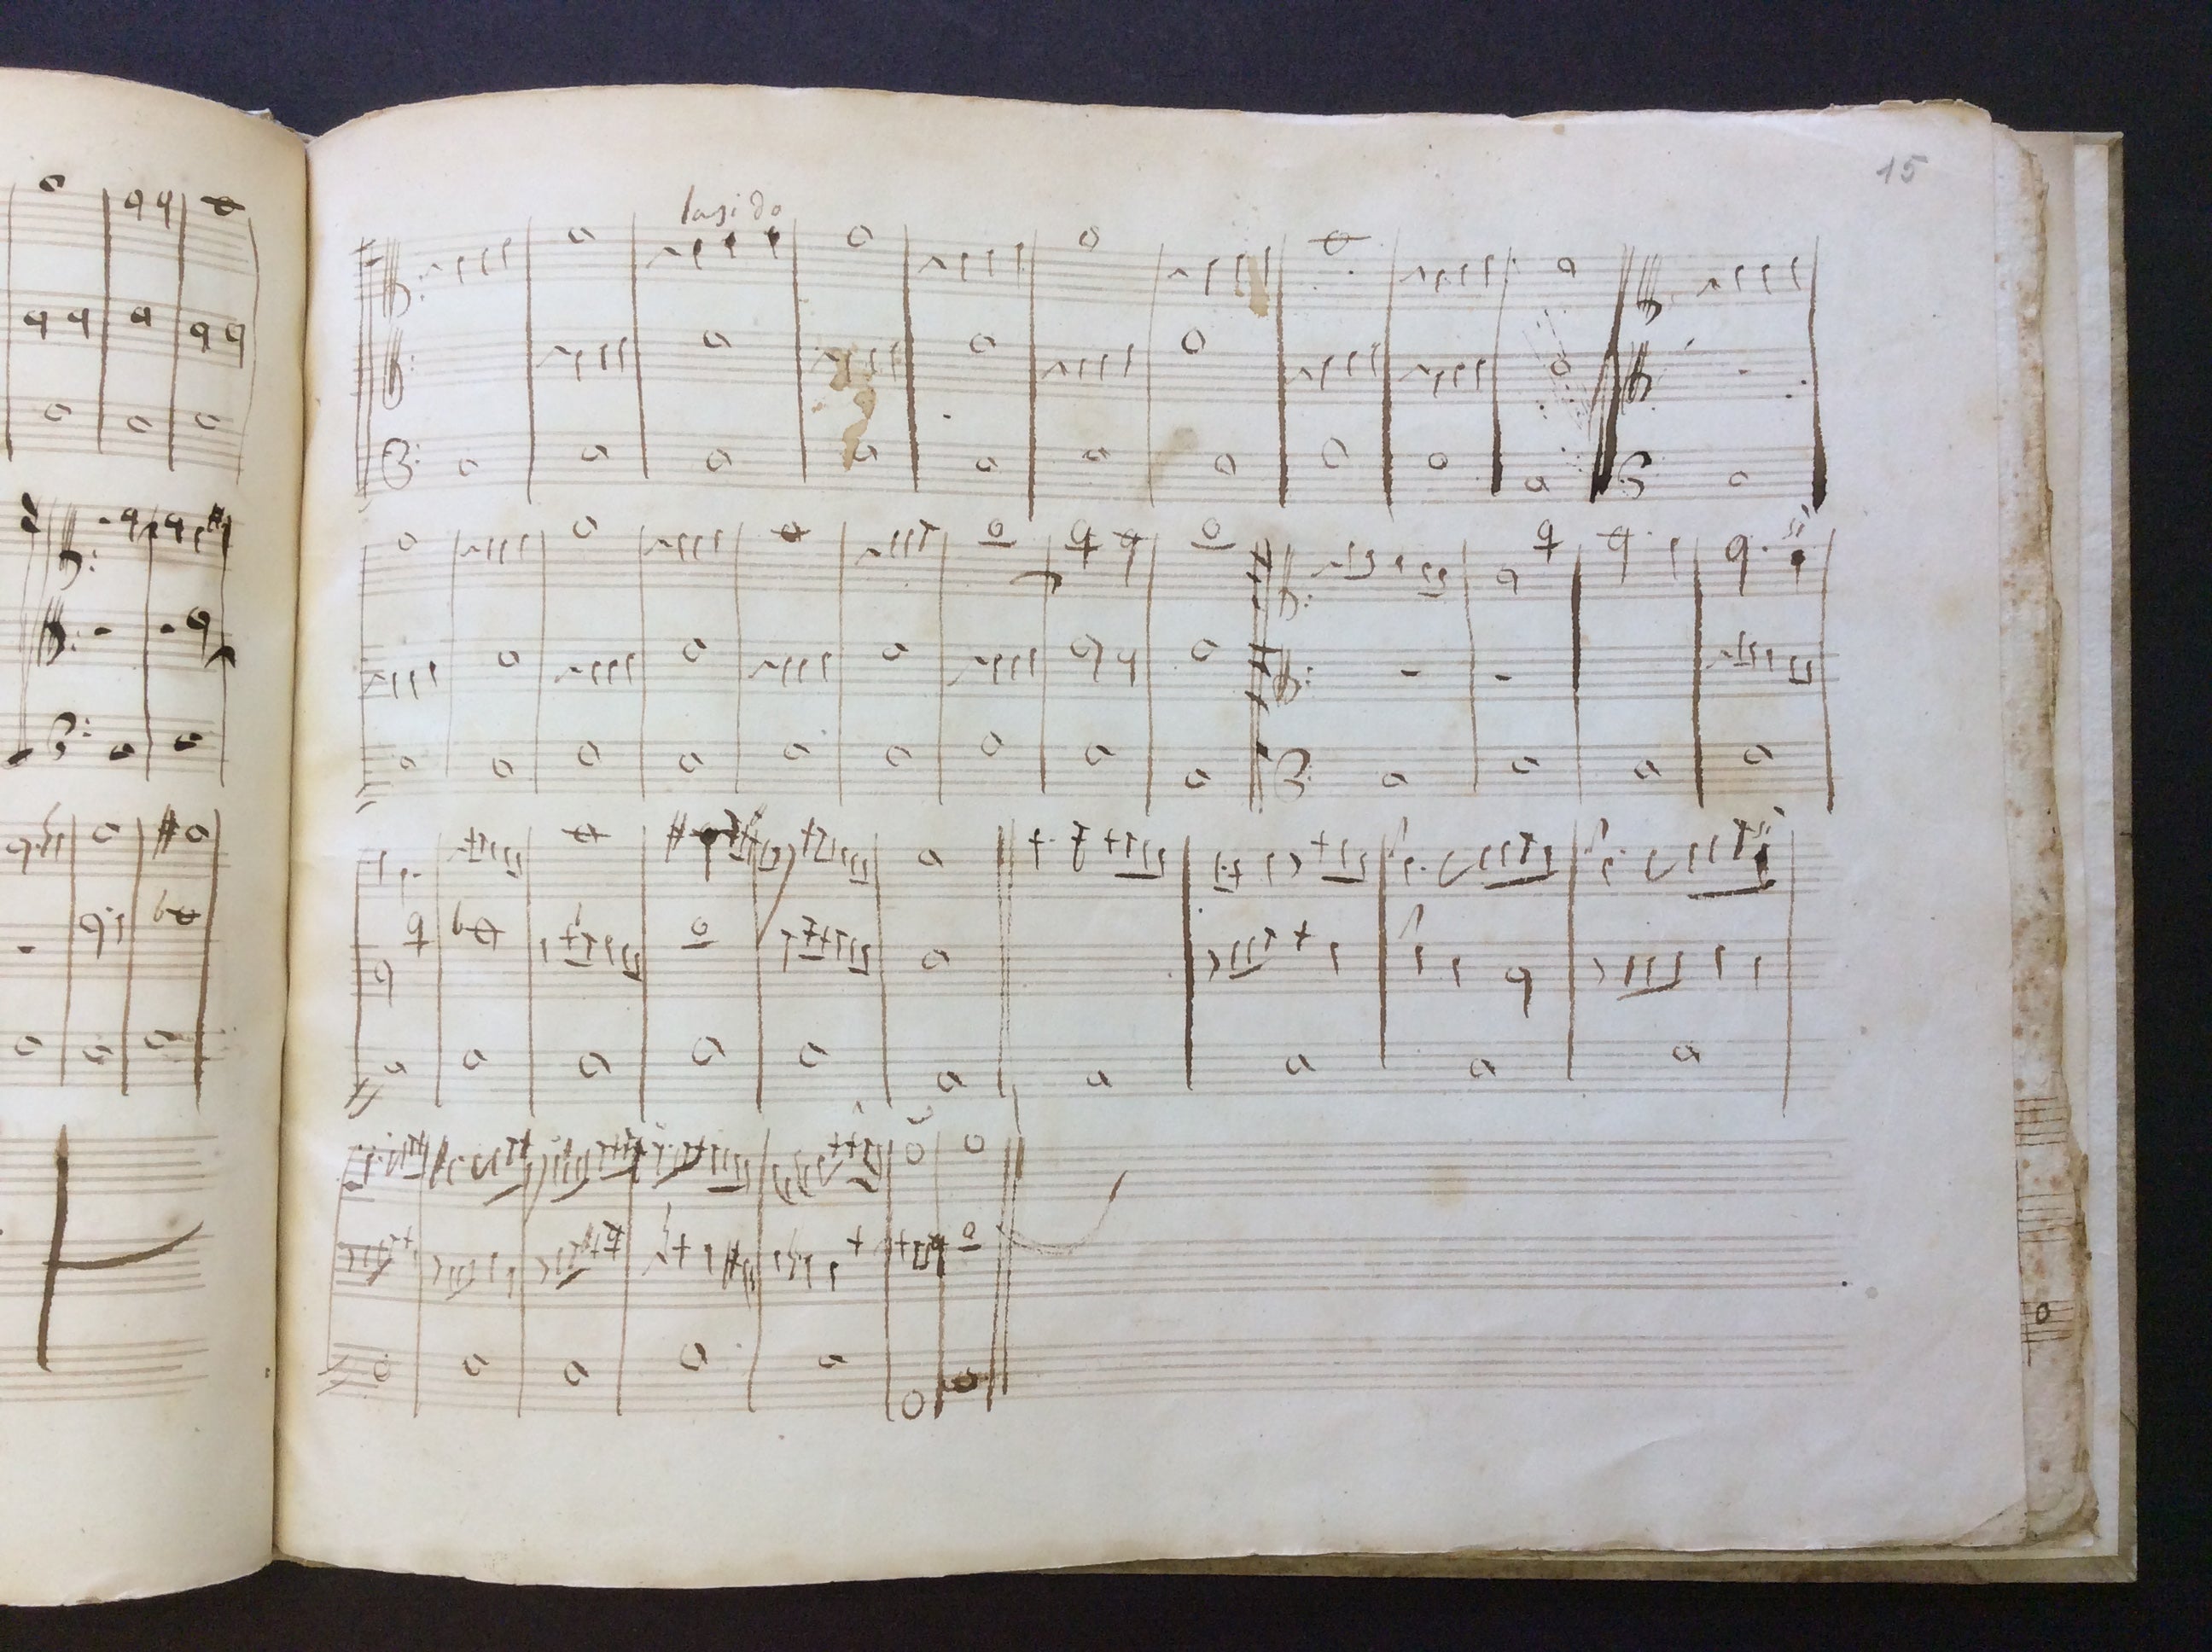 15
la si do